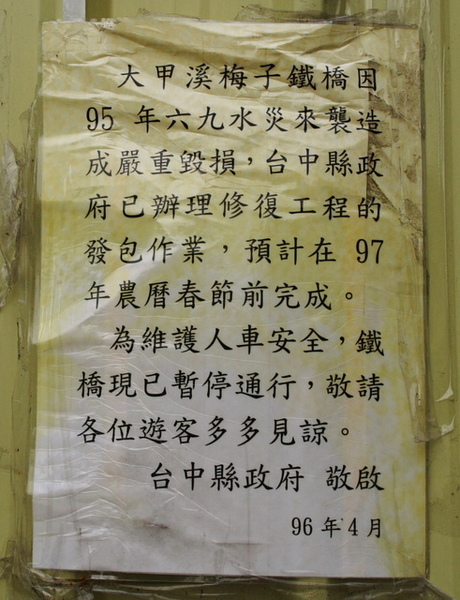 大甲溪梅子鐵橋因
95 年六九水災來襲造
成嚴重毀損，台中縣政
府已辦理修復工程的
發包作業，預計在 97
年農曆春節前完成。
為維護人車安全，鐵
橋現已暫停通行，敬請
各位遊客多多見諒。
台中縣政府 敬啟
96 年 4 月